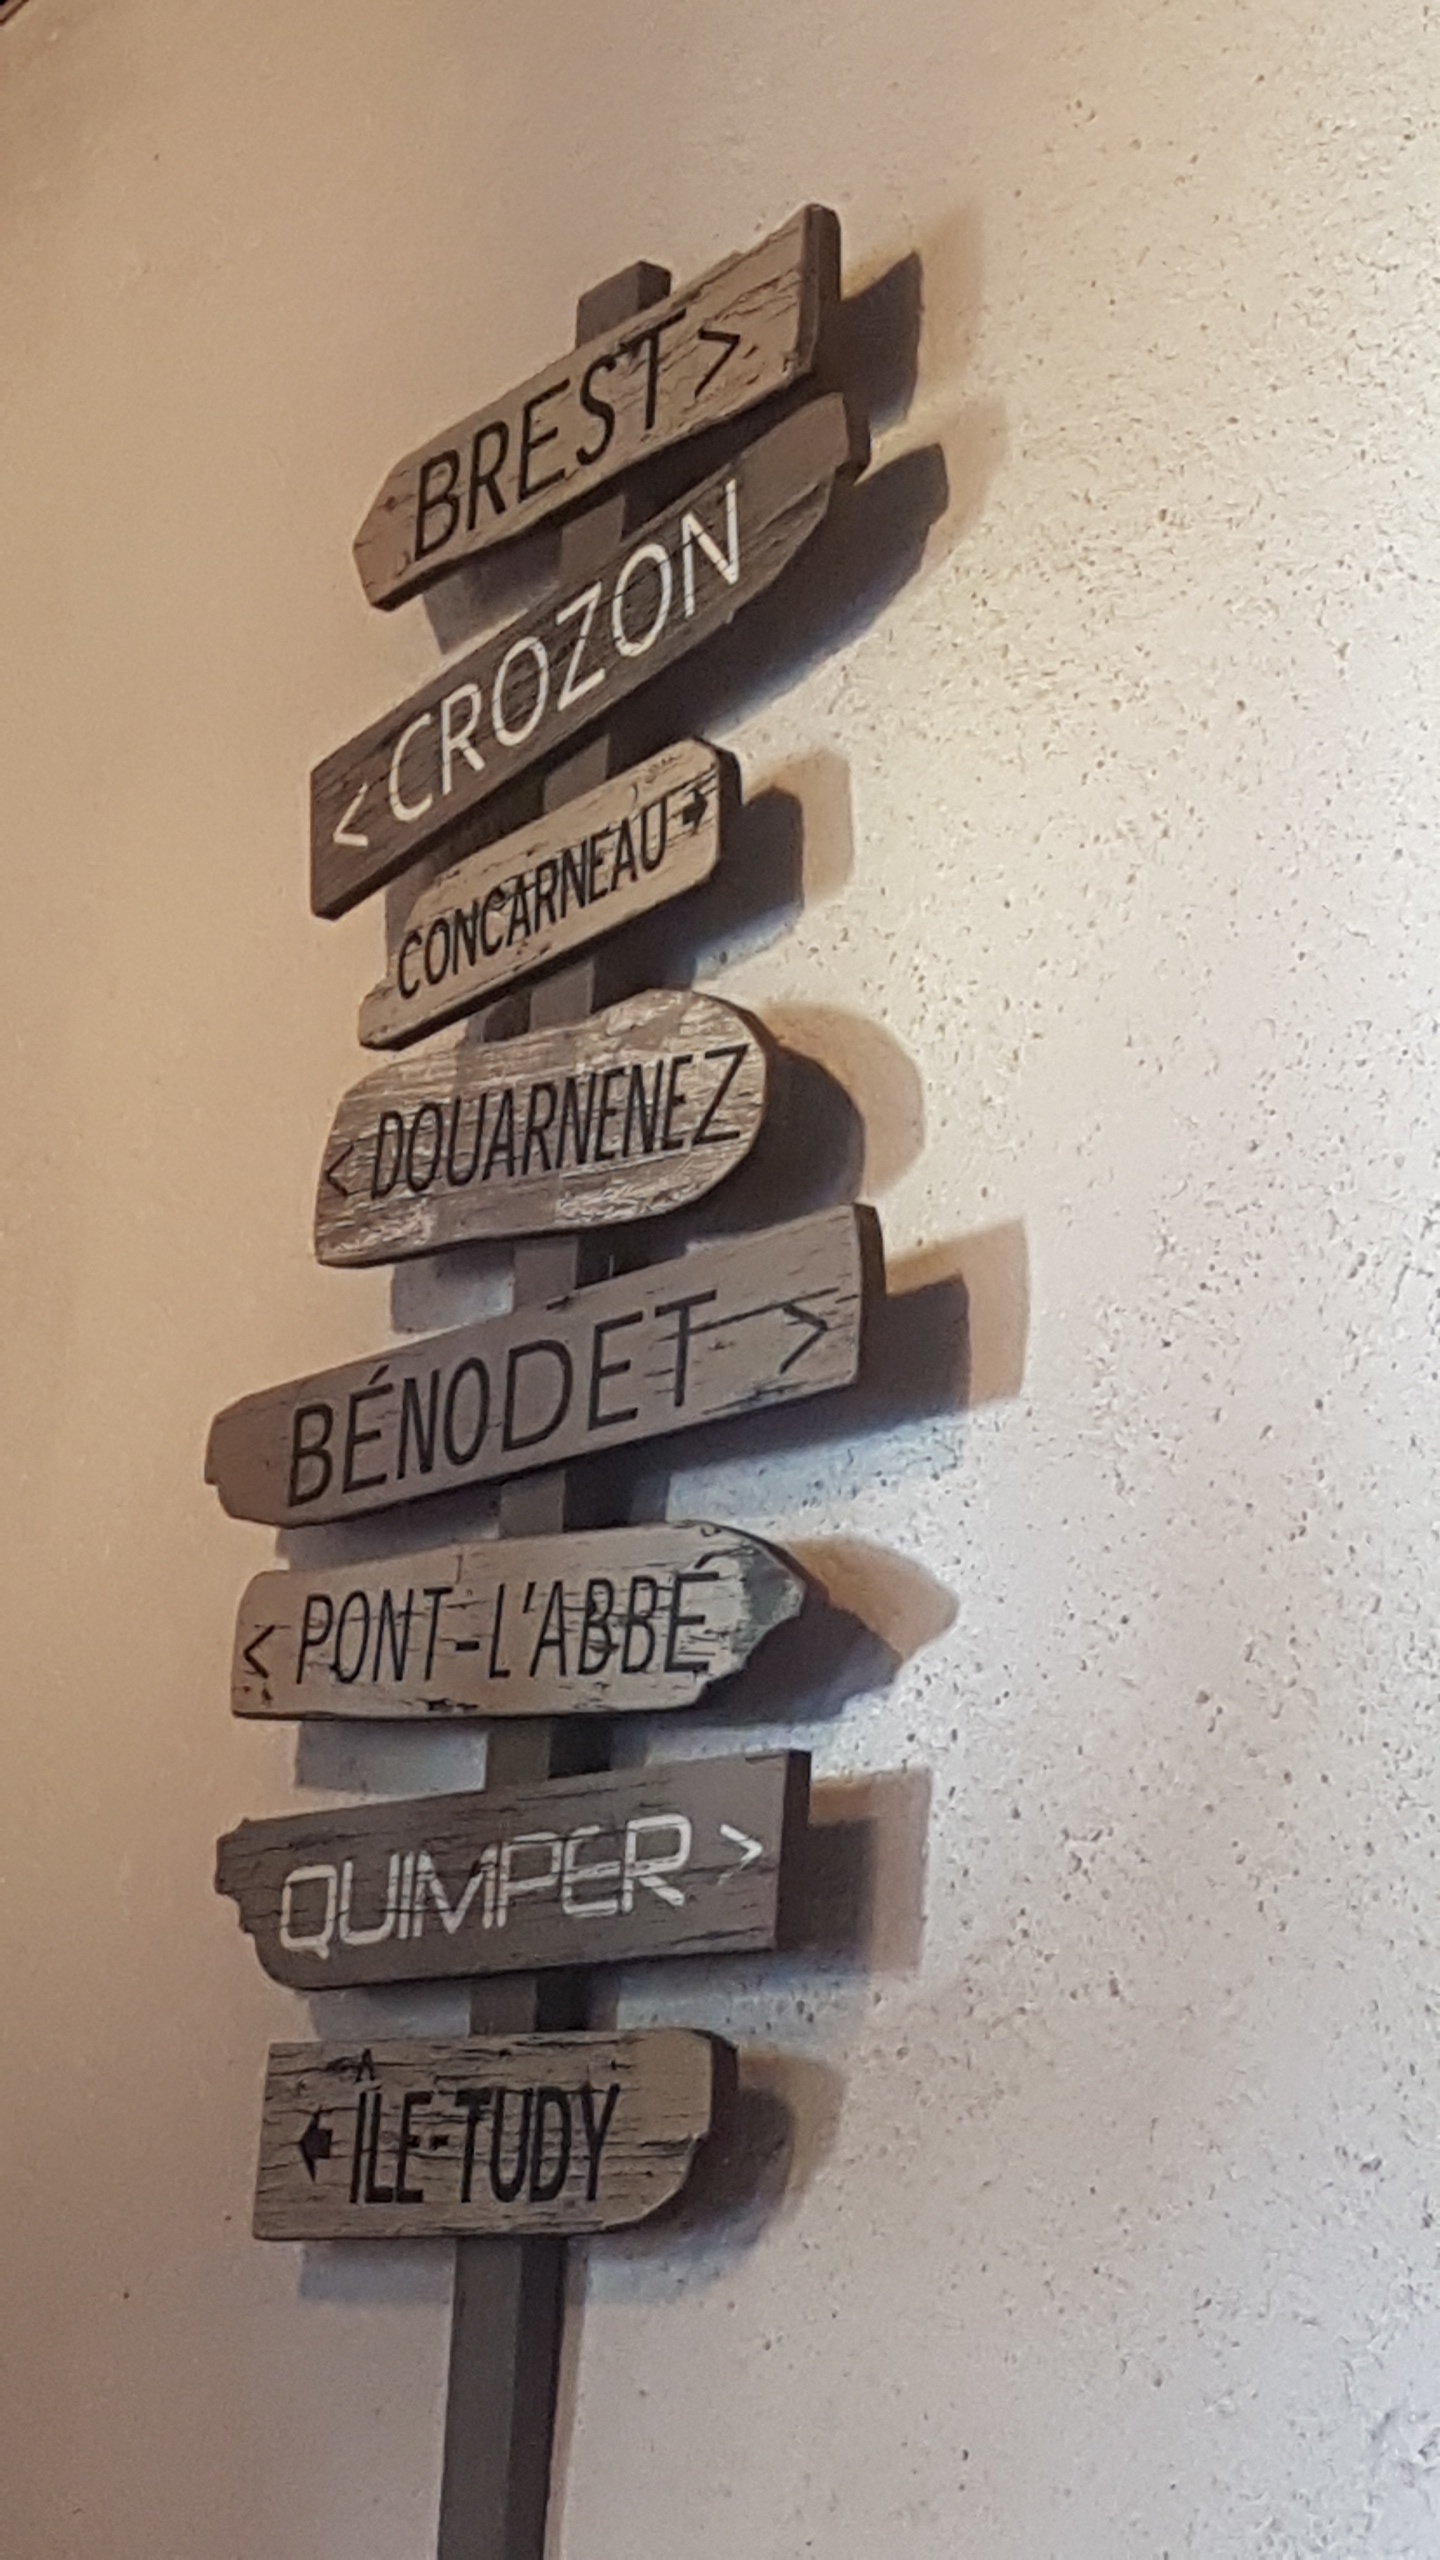 BREST >
< CROZON
CONCARNEAU →
< DOUARNENEZ
BÉNODET >
< PONT-L'ABBÉ
QUIMPER >
← ÎLE-TUDY